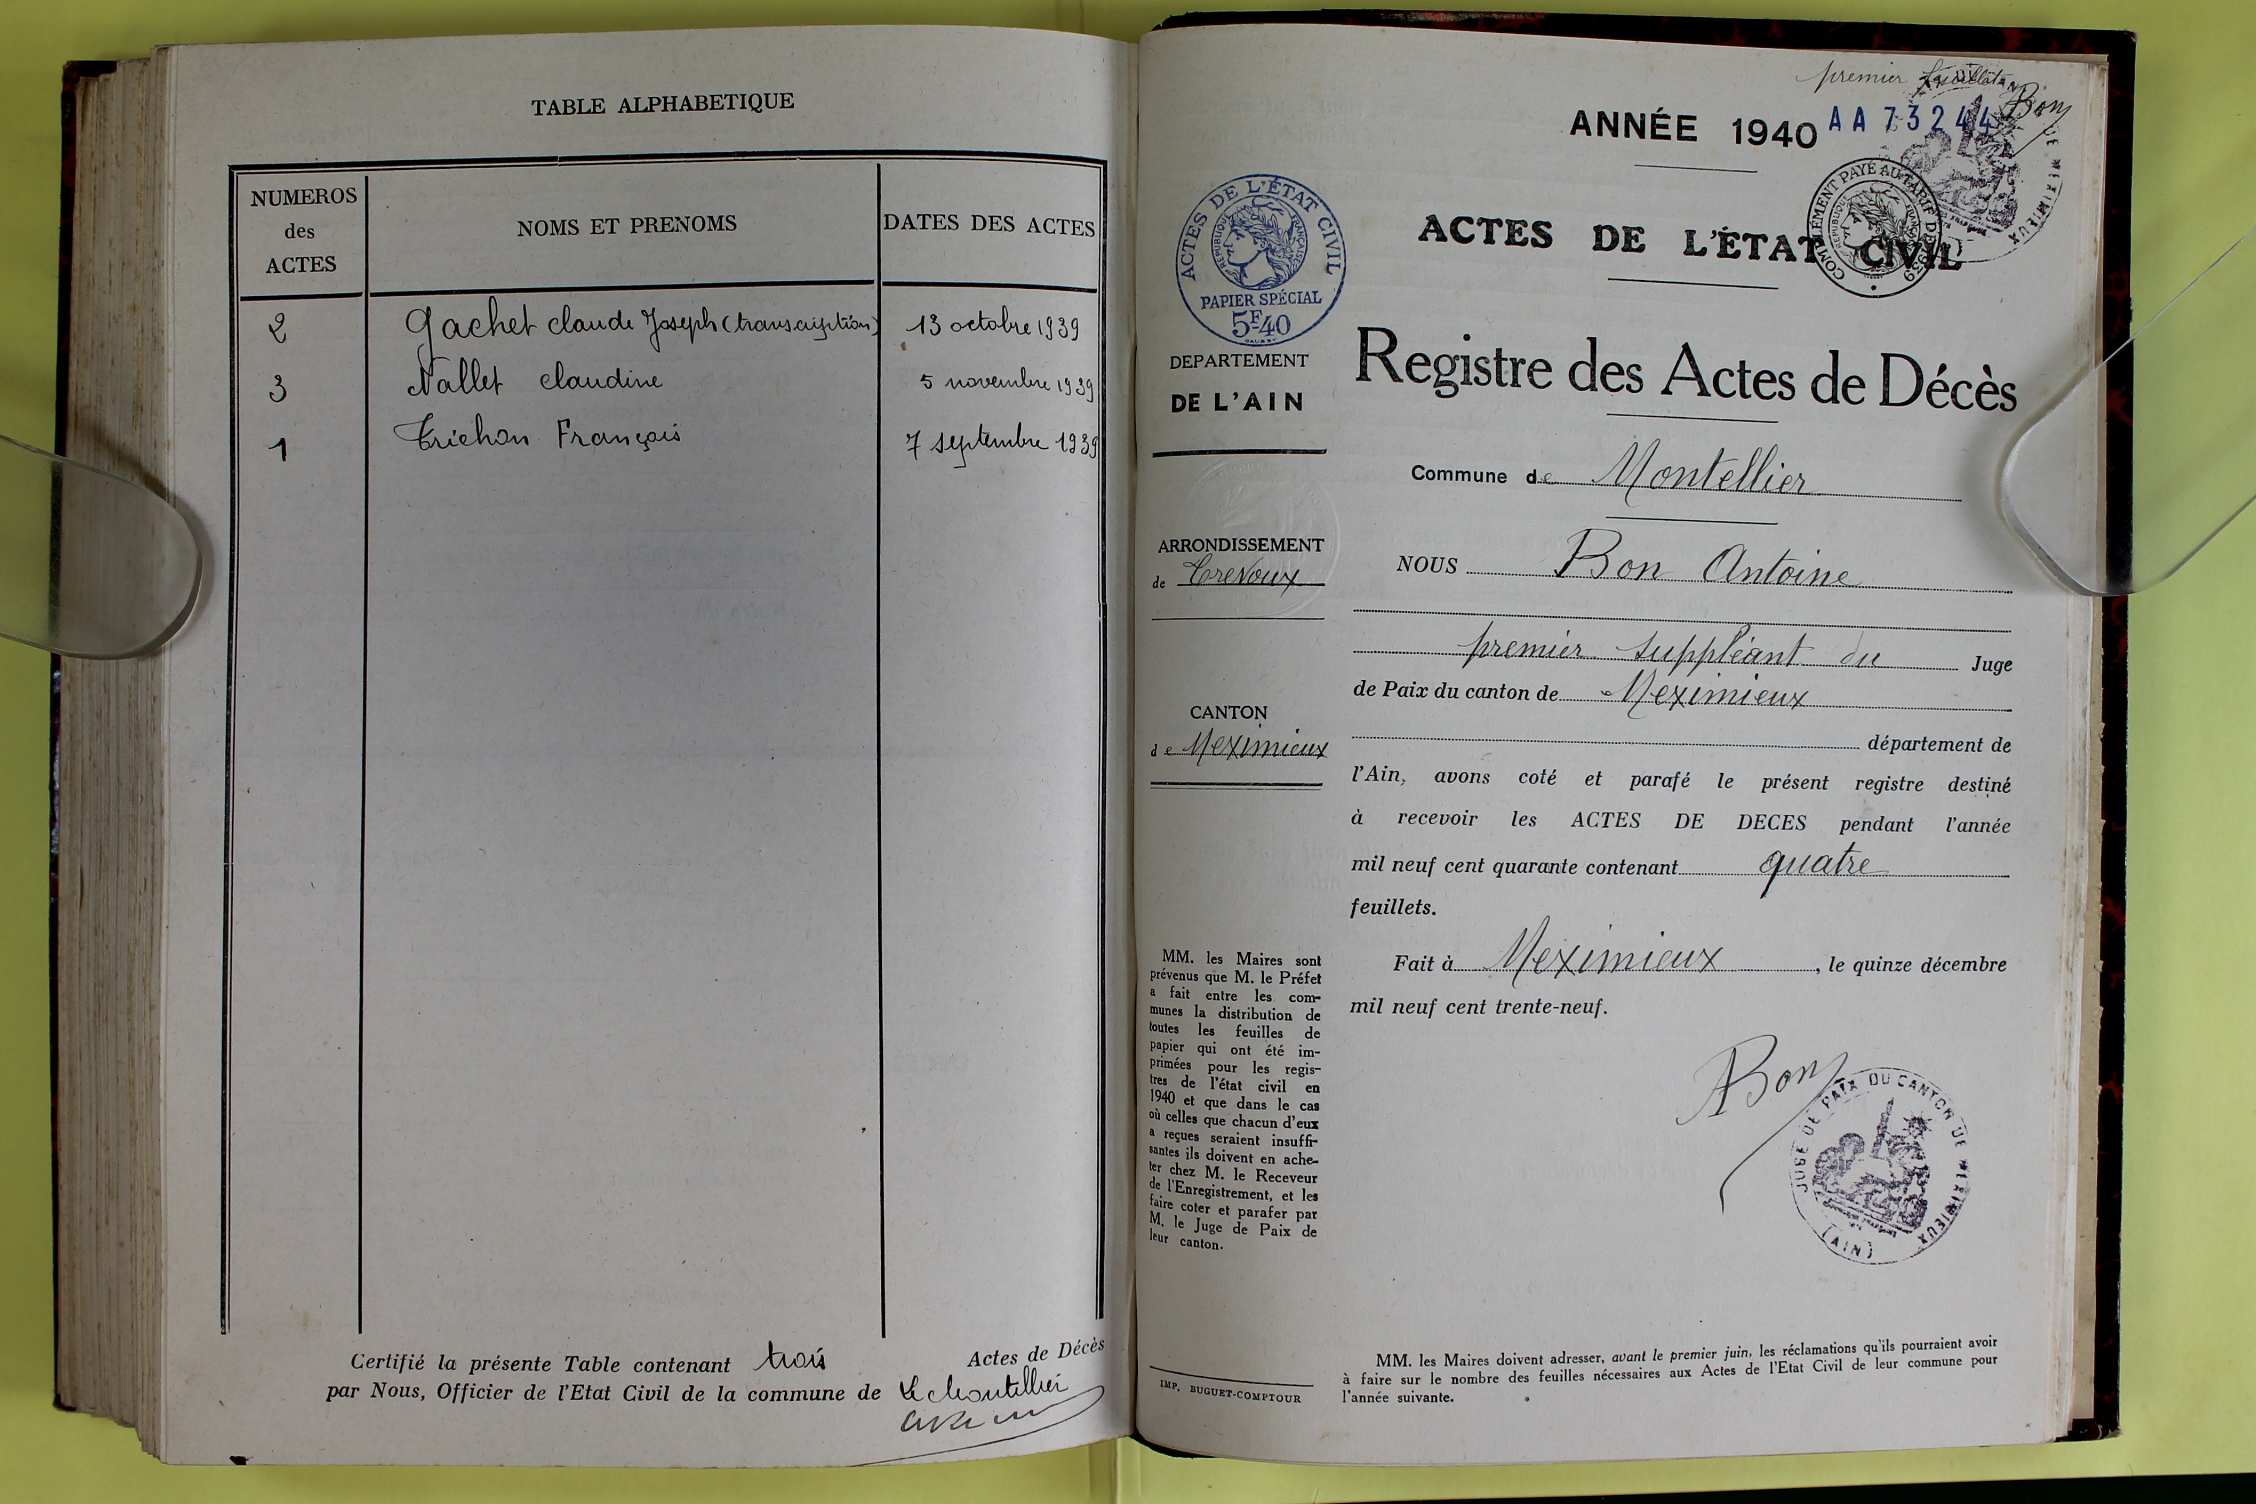 TABLE ALPHABETIQUE
NUMEROS
des
ACTES
NOMS ET PRENOMS
DATES DES ACTES
2 Gachet claude Joseph (transcription) 13 octobre 1939
3 Nallet claudine 5 novembre 1939
1 Trichon François 7 septembre 1939
Certifié la présente Table contenant trois Actes de Décès
par Nous, Officier de l'Etat Civil de la commune de Le Montellier
premier
Bon
ANNÉE 1940
AA 73244
ACTES DE L'ÉTAT CIVIL
COMPLÉMENT PAYÉ AU TARIF DE 1939
RÉPUBLIQUE FRANÇAISE
ACTES DE L'ÉTAT CIVIL
RÉPUBLIQUE FRANÇAISE
PAPIER SPÉCIAL
5F40
DEPARTEMENT
DE L'AIN
ARRONDISSEMENT
de Trevoux
CANTON
de Meximieux
MM. les Maires sont
prévenus que M. le Préfet
a fait entre les com-
munes la distribution de
toutes les feuilles de
papier qui ont été im-
primées pour les regis-
tres de l'état civil en
1940 et que dans le cas
où celles que chacun d'eux
a reçues seraient insuffi-
santes ils doivent en ache-
ter chez M. le Receveur
de l'Enregistrement, et les
faire coter et parafer par
M. le Juge de Paix de
leur canton.
IMP. BUGUET-COMPTOUR
Registre des Actes de Décès
Commune de Montellier
NOUS Bon Antoine
premier suppléant du Juge
de Paix du canton de Meximieux
département de
l'Ain, avons coté et parafé le présent registre destiné
à recevoir les ACTES DE DECES pendant l'année
mil neuf cent quarante contenant quatre
feuillets.
Fait à Meximieux, le quinze décembre
mil neuf cent trente-neuf.
Bon
JUGE DE PAIX DU CANTON DE MEXIMIEUX
(AIN)
MM. les Maires doivent adresser, avant le premier juin, les réclamations qu'ils pourraient avoir
à faire sur le nombre des feuilles nécessaires aux Actes de l'Etat Civil de leur commune pour
l'année suivante.